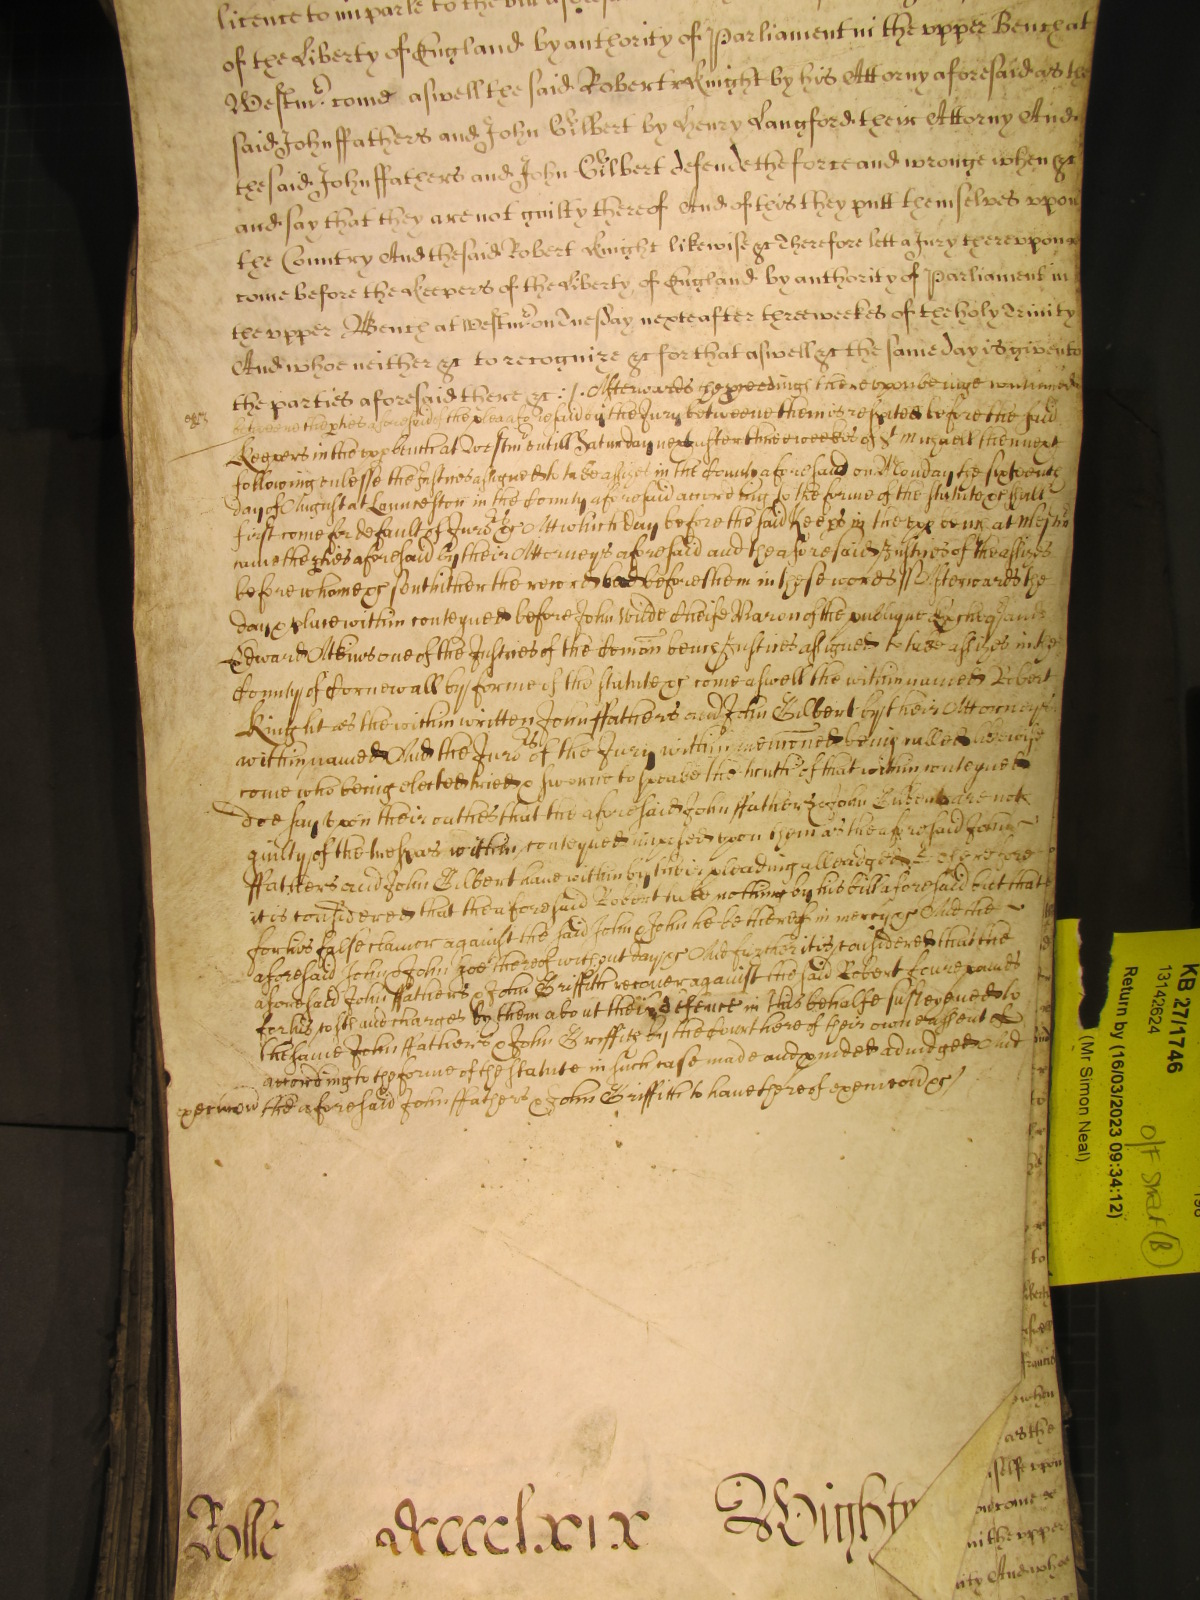 licence to imparle to the bill aforesaid
of the Liberty of England by authority of Parliament in the upper Bench at
Westmr. come aswell the said Robert Knight by his Attorny aforesaid as the
said John ffathers and John Gilbert by Henry Langford their Attorny And
the said John ffathers and John Gilbert defende the force and wronge when &c
and say that they are not guilty thereof And of this they putt themselves upon
the Country And the said Robert Knight likewise &c Therefore lett a Jury thereupon
come before the Keepers of the Liberty of England by authority of Parliament in
the upper Bench at Westmr on Tuesday nexte after three weekes of the holy Trinity
And whoe neither &c to recognize &c for that aswell &c the same day is given to
the parties aforesaid there &c :/. Afterwards the proceedings thereupon beinge continued
betweene the pties aforesaid of the plea aforesaid by the Jury betweene them is respited before the said
Keepers in the upp bench at Westmr untill Saturday next after three weekes of St Michaell then next
following unlesse the Justices assigned to take assizes in the County aforesaid on Monday the sixteenth
day of August at Launceston in the County aforesaid according to the forme of the statute &c shall
first come for default of Jurors &c Att which day before the said Keeps in the upp bench at Westmr
came the pties aforesaid by their Attorneys aforesaid and the aforesaid Justices of the assizes
before whome &c sent hither the record had before them in these words // Afterwards the
day & place within conteyned before John Wilde Cheife Baron of the publique Excheqr and
Edward Atkins one of the Justices of the Comon bench Justices assigned to take assizes in the
County of Cornewall by forme of the statute &c come aswell the within named Robert
Knight as the within written John ffathers and John Gilbert by their Attorneys
within named And the Jurors of the Jury within menconed being called likewise
come who being elected tried & sworne to speake the truth of that within conteyned
doe say upon their oathes that the aforesaid John ffathers & John Gilbert are not
guilty of the trespas within conteyned imposed upon them as the aforesaid John
ffathers and John Gilbert have within by their pleading alleadged Therefore
it is considered that the aforesaid Robert take nothing by his bill aforesaid but that
for his false clamor against the said John & John he be thereof in mercy &c And the
aforesaid John & John goe thereof without day &c And further it is considered that the
aforesaid John ffathers & John Griffith recover against the said Robert foure pounds
for his costs and charges by them about their defence in this behalfe susteyned to
the same John ffathers & John Griffith by the Court here of their owne assent &
according to the forme of the statute in such case made and pvided adiudged And
execucon the aforesaid John ffathers & John Griffith to have thereof execucon &c/
Rolle Mccccl.xix Wighty
KB 27/1746
13142624
Return by (16/03/2023 09:34:12)
(Mr Simon Neal)